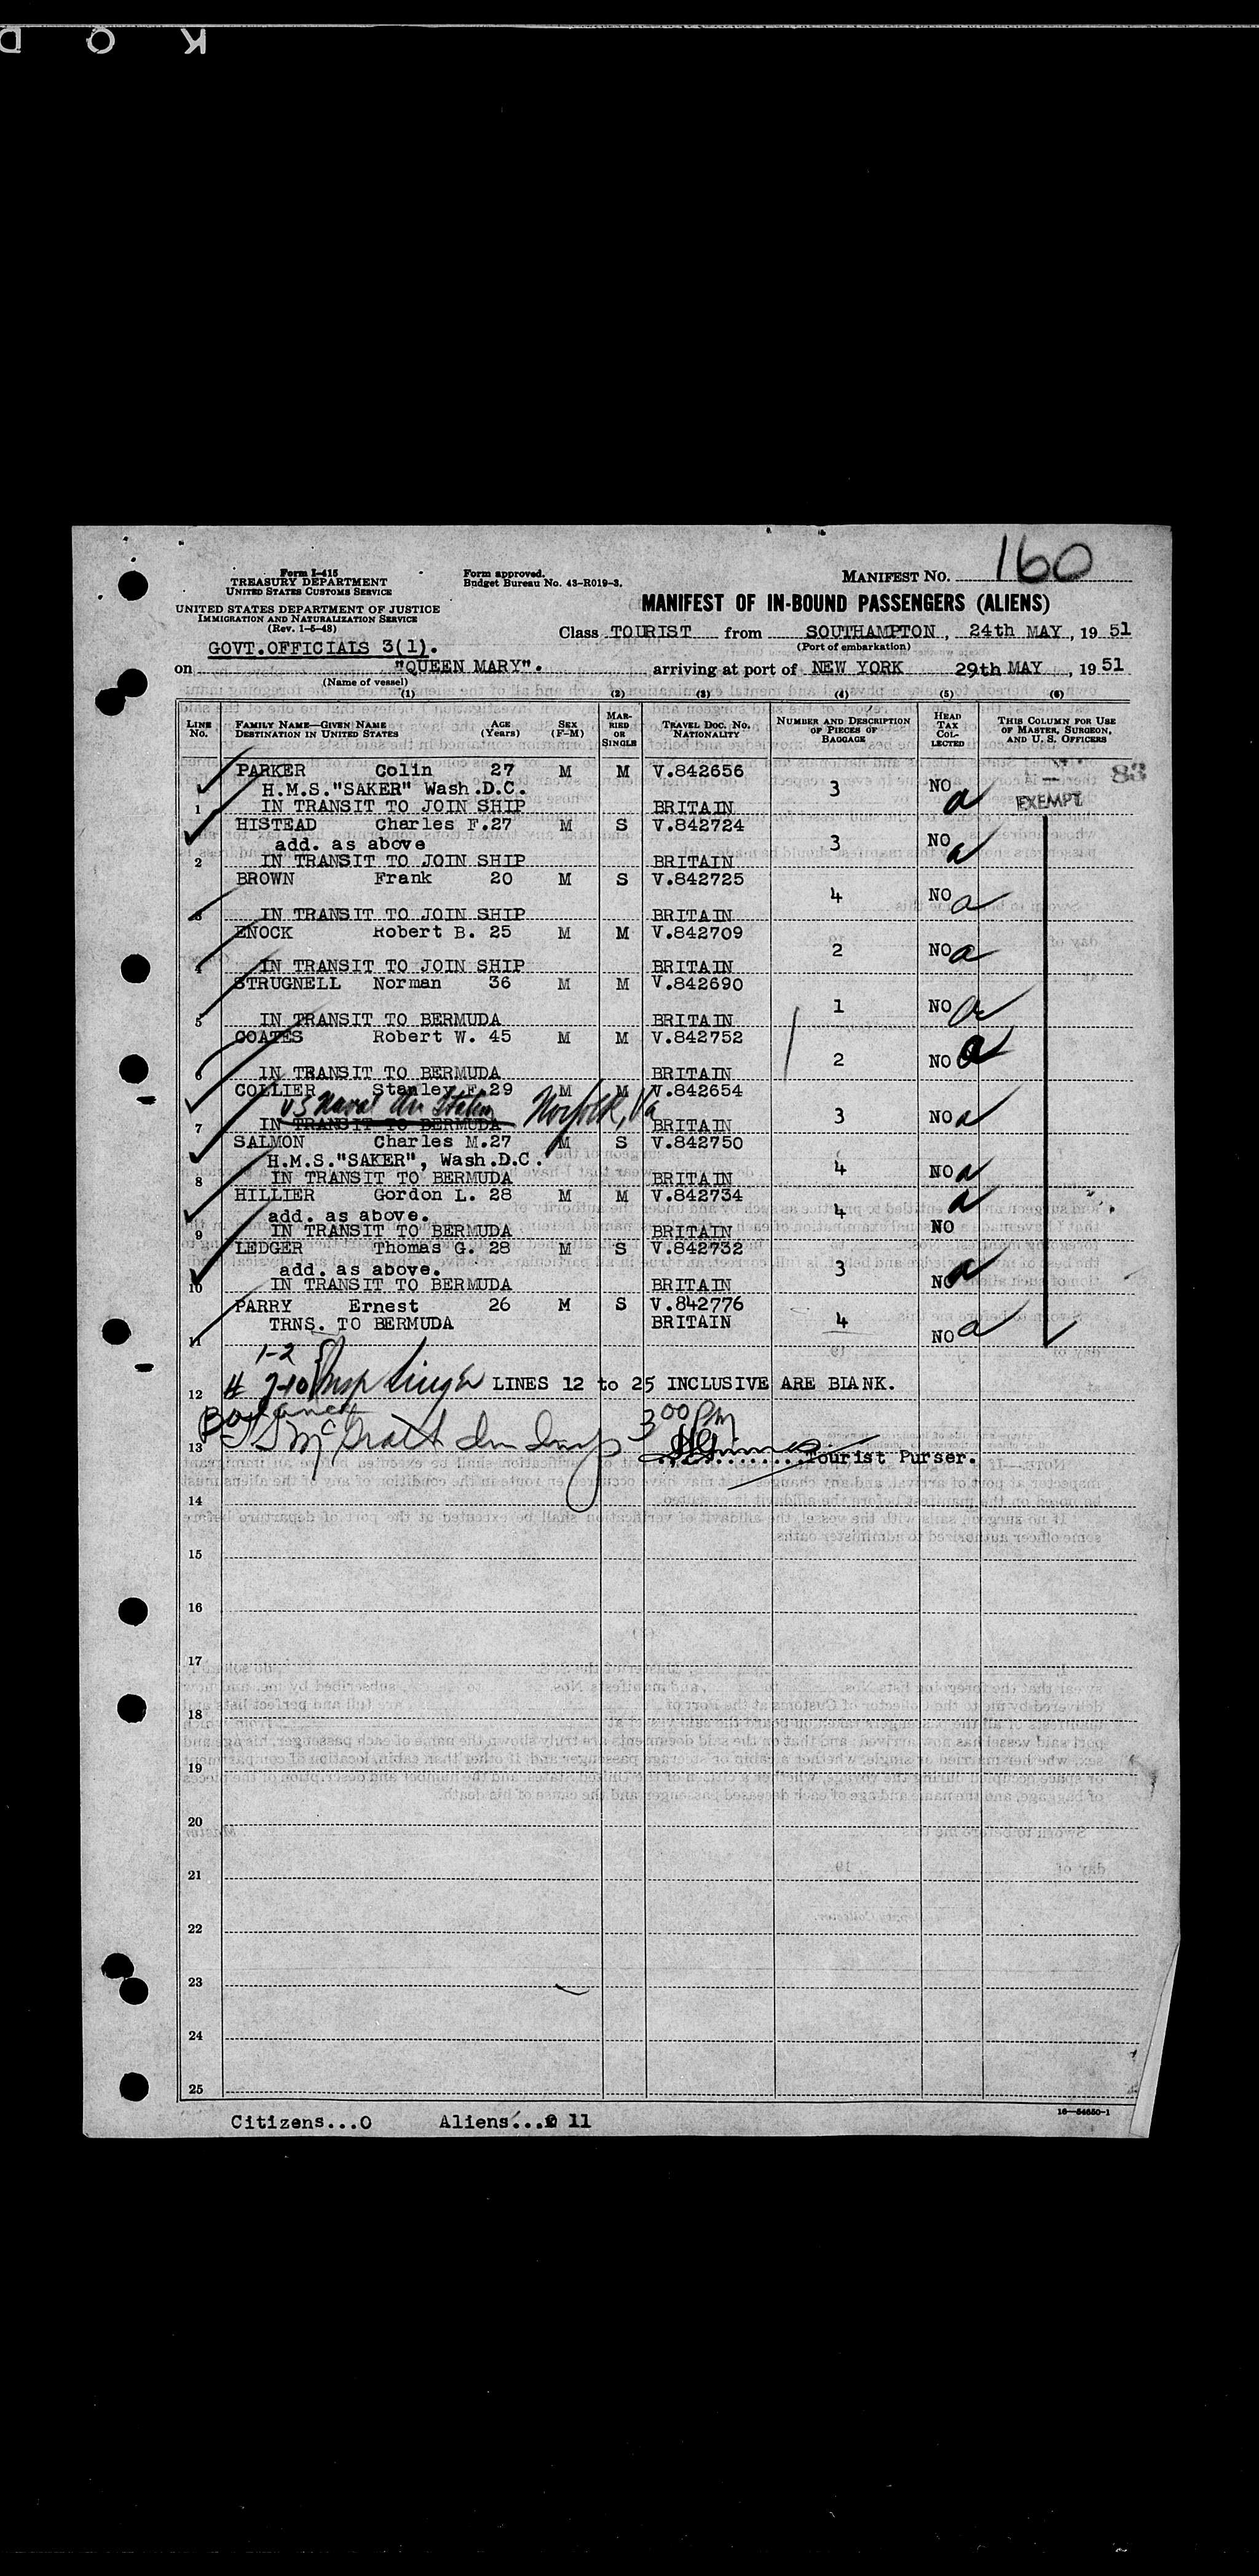 K O D
Form I-415
TREASURY DEPARTMENT
UNITED STATES CUSTOMS SERVICE
UNITED STATES DEPARTMENT OF JUSTICE
IMMIGRATION AND NATURALIZATION SERVICE
(Rev. 1-5-48)
Form approved.
Budget Bureau No. 43-R019-3.
MANIFEST NO. 160
MANIFEST OF IN-BOUND PASSENGERS (ALIENS)
Class TOURIST from SOUTHAMPTON, 24th MAY, 1951
(Port of embarkation)
GOVT.OFFICIALS 3(1).
on "QUEEN MARY". arriving at port of NEW YORK 29th MAY, 1951
(Name of vessel)
(1) (2) (3) (4) (5) (6)
LINE No. FAMILY NAME—GIVEN NAME DESTINATION IN UNITED STATES AGE (Years) SEX (F-M) MARRIED OR SINGLE TRAVEL DOC. NO. NATIONALITY NUMBER AND DESCRIPTION OF PIECES OF BAGGAGE HEAD TAX COLLECTED THIS COLUMN FOR USE OF MASTER, SURGEON, AND U. S. OFFICERS
PARKER Colin 27 M M V.842656 83
H.M.S."SAKER" Wash.D.C. 3 NO a EXEMPT
1 IN TRANSIT TO JOIN SHIP BRITAIN
HISTEAD Charles F.27 M S V.842724
add. as above 3 NO a
2 IN TRANSIT TO JOIN SHIP BRITAIN
BROWN Frank 20 M S V.842725
4 NO a
3 IN TRANSIT TO JOIN SHIP BRITAIN
ENOCK Robert B. 25 M M V.842709
2 NO a
4 IN TRANSIT TO JOIN SHIP BRITAIN
STRUGNELL Norman 36 M M V.842690
1 NO a
5 IN TRANSIT TO BERMUDA BRITAIN
COATES Robert W. 45 M M V.842752
2 NO a
6 IN TRANSIT TO BERMUDA BRITAIN
COLLIER Stanley F.29 M M V.842654
US Naval Air Station Norfolk, Va 3 NO a
7 IN TRANSIT TO BERMUDA BRITAIN
SALMON Charles M.27 M S V.842750
H.M.S."SAKER", Wash.D.C. 4 NO a
8 IN TRANSIT TO BERMUDA BRITAIN
HILLIER Gordon L. 28 M M V.842734 a
add. as above. 4 NO
9 IN TRANSIT TO BERMUDA BRITAIN
LEDGER Thomas G. 28 M S V.842732
add. as above. 3 NO a
10 IN TRANSIT TO BERMUDA BRITAIN
PARRY Ernest 26 M S V.842776
TRNS. TO BERMUDA BRITAIN 4 NO a
11
1-2
12 # 7-10 Insp LINES 12 to 25 INCLUSIVE ARE BLANK.
Balance
13 McGrath 3 00 PM
Tourist Purser.
14
15
16
17
18
19
20
21
22
23
24
25
Citizens...0 Aliens... 11
16—54650-1